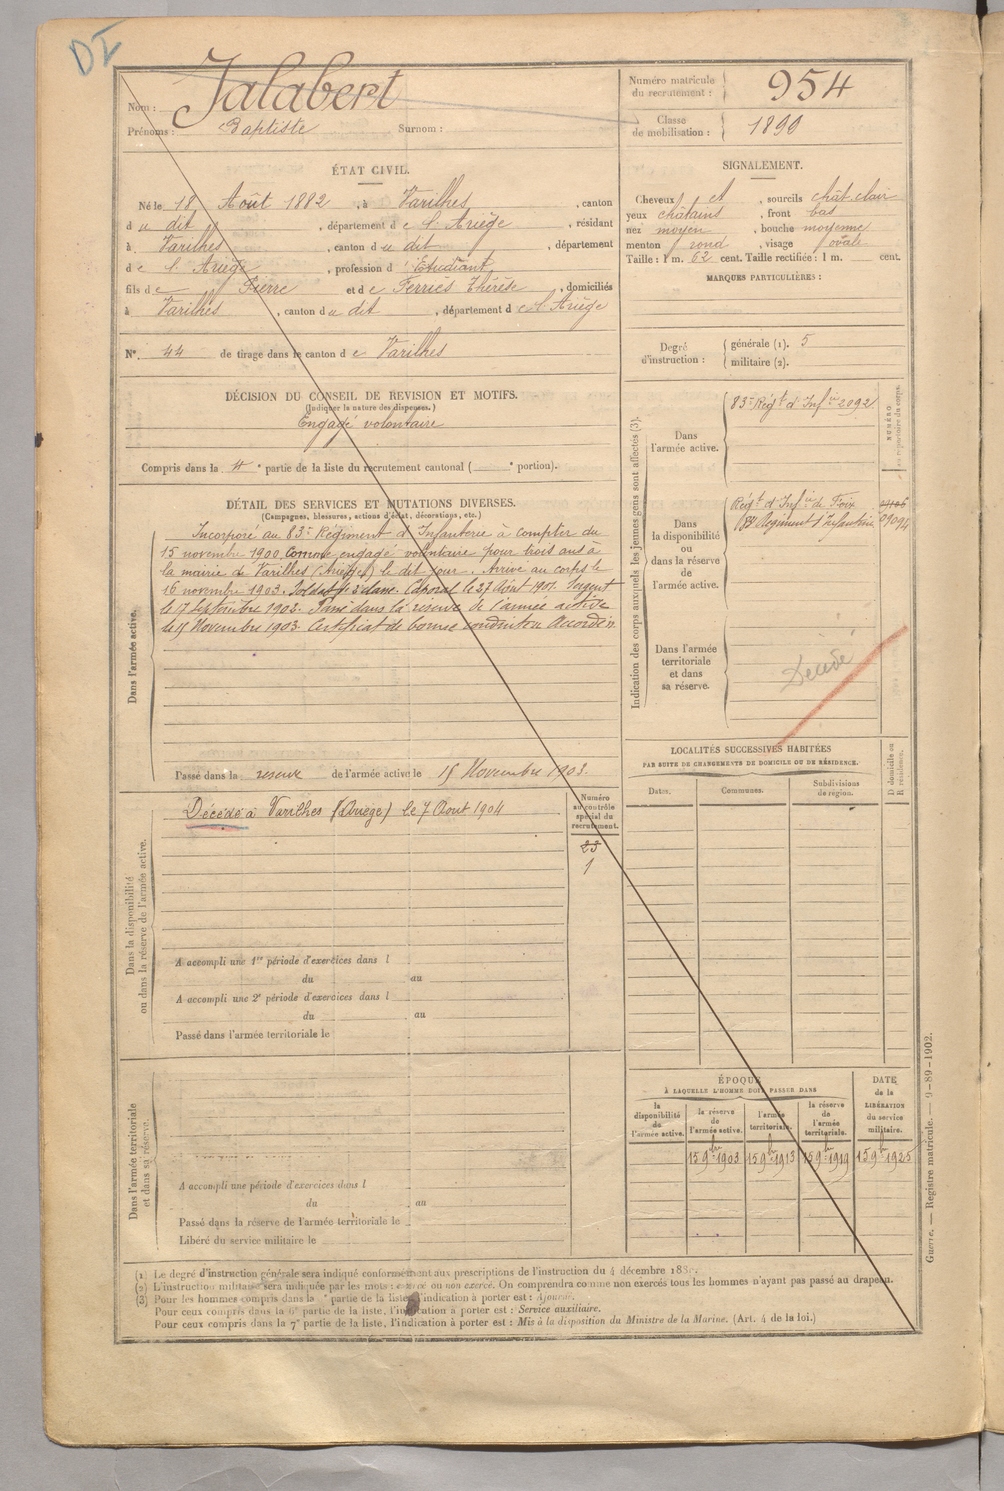 DI
Nom : Jalabert
Prénoms : Baptiste Surnom :
Numéro matricule du recrutement : 954
Classe de mobilisation : 1899
ÉTAT CIVIL.
Né le 18 Août 1882, à Varilhes, canton
du dit, département de l'Ariège, résidant
à Varilhes, canton du dit, département
de l'Ariège, profession d'Etudiant
fils de Pierre et de Ferriès Thérèse, domiciliés
à Varilhes, canton du dit, département de l'Ariège
N° 44 de tirage dans le canton de Varilhes
SIGNALEMENT.
Cheveux et, sourcils chât clair
yeux châtains, front bas
nez moyen, bouche moyenne
menton rond, visage ovale
Taille : 1 m. 62 cent. Taille rectifiée : 1 m. cent.
MARQUES PARTICULIÈRES :
Degré d'instruction :
générale (1). 5
militaire (2).
DÉCISION DU CONSEIL DE REVISION ET MOTIFS.
(Indiquer la nature des dispenses.)
Engagé volontaire
Compris dans la 4e partie de la liste du recrutement cantonal ( e portion).
DÉTAIL DES SERVICES ET MUTATIONS DIVERSES.
(Campagnes, blessures, actions d'éclat, décorations, etc.)
Dans l'armée active.
Incorporé au 83e Régiment d'Infanterie à compter du
15 novembre 1900 Comme engagé volontaire pour trois ans à
la mairie de Varilhes (Ariège) le dit jour. Arrivé au corps le
16 novembre 1903. Soldat de 2e classe. Caporal le 27 Août 1901. Sergent
le 17 Septembre 1903. Passé dans la réserve de l'armée active
le 15 Novembre 1903. Certificat de bonne conduite Accordé
Passé dans la reserve de l'armée active le 15 Novembre 1903.
Indication des corps auxquels les jeunes gens sont affectés (3).
NUMÉRO au répertoire du corps.
Dans l'armée active.
83e Régt d'Infie 2092
Dans la disponibilité ou dans la réserve de l'armée active.
Régt d'Infie de Foix
Régiment d'Infanterie
Dans l'armée territoriale et dans sa réserve.
Décédé
LOCALITÉS SUCCESSIVES HABITÉES
PAR SUITE DE CHANGEMENTS DE DOMICILE OU DE RÉSIDENCE.
Dates. Communes. Subdivisions de région. D domicile ou R résidence.
Ou dans la disponibilité ou dans la réserve de l'armée active.
Décédé à Varilhes (Ariège) le 7 Aout 1904
Numéro au contrôle spécial du recrutement.
23
1
A accompli une 1re période d'exercices dans l
du au
A accompli une 2e période d'exercices dans l
du au
Passé dans l'armée territoriale le
Dans l'armée territoriale et dans sa réserve.
A accompli une période d'exercices dans l
du au
Passé dans la réserve de l'armée territoriale le
Libéré du service militaire le
ÉPOQUE
À LAQUELLE L'HOMME DOIT PASSER DANS
la disponibilité de l'armée active.
la réserve de l'armée active.
l'armée territoriale.
la réserve de l'armée territoriale.
DATE de la LIBÉRATION du service militaire.
15 9bre 1903 15 9bre 1913 15 9bre 1919 15 9bre 1925
(1) Le degré d'instruction générale sera indiqué conformément aux prescriptions de l'instruction du 4 décembre
(2) L'instruction militaire sera indiquée par les mots : exercé ou non exercé. On comprendra comme non exercés tous les hommes n'ayant pas passé au drapeau.
(3) Pour les hommes compris dans la partie de la liste, l'indication à porter est : Ajourné.
Pour ceux compris dans la 6e partie de la liste, l'indication à porter est : Service auxiliaire.
Pour ceux compris dans la 7e partie de la liste, l'indication à porter est : Mis à la disposition du Ministre de la Marine. (Art. 4 de la loi.)
Guerre. — Registre matricule. — 9-89-1902.